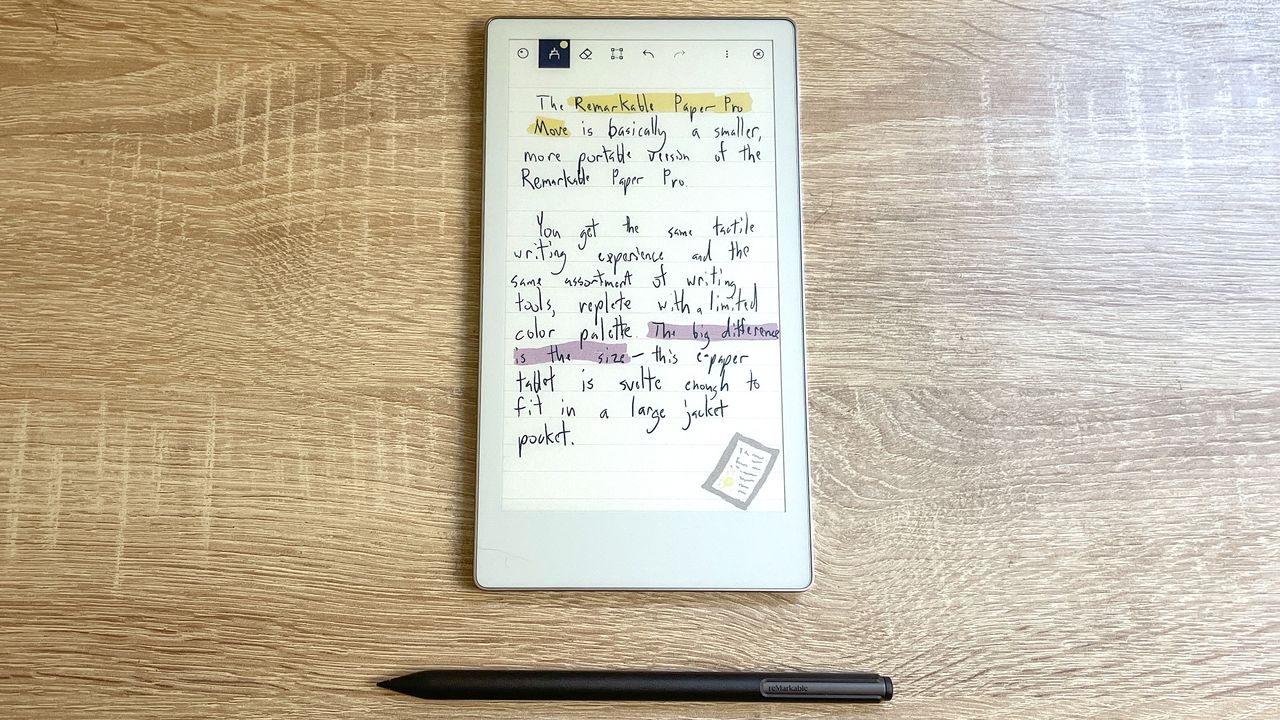 The Remarkable Paper Pro
Move is basically a smaller,
more portable version of the
Remarkable Paper Pro.
You get the same tactile
writing experience and the
same assortment of writing
tools, replete with a limited
color palette. The big difference
is the size - this epaper
tablet is svelte enough to
fit in a large jacket
pocket.
reMarkable